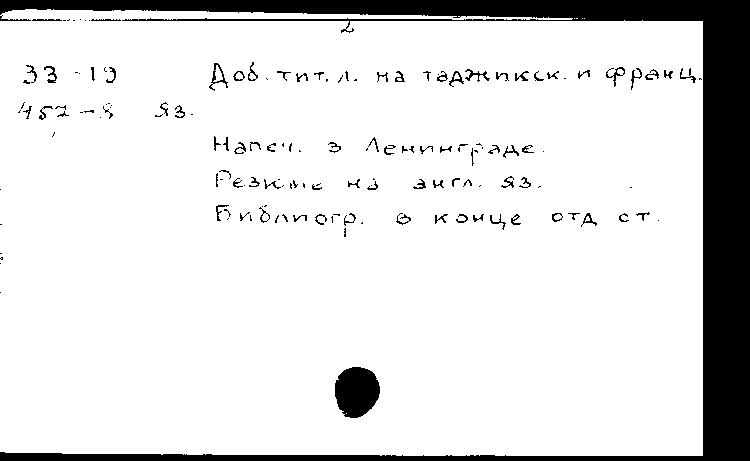 2
33-19 Доб. тит. л. на таджикск. и франц.
457-8 яз.
Напеч. в Ленинграде.
Резюме на англ. яз.
Библиогр. в конце отд ст.